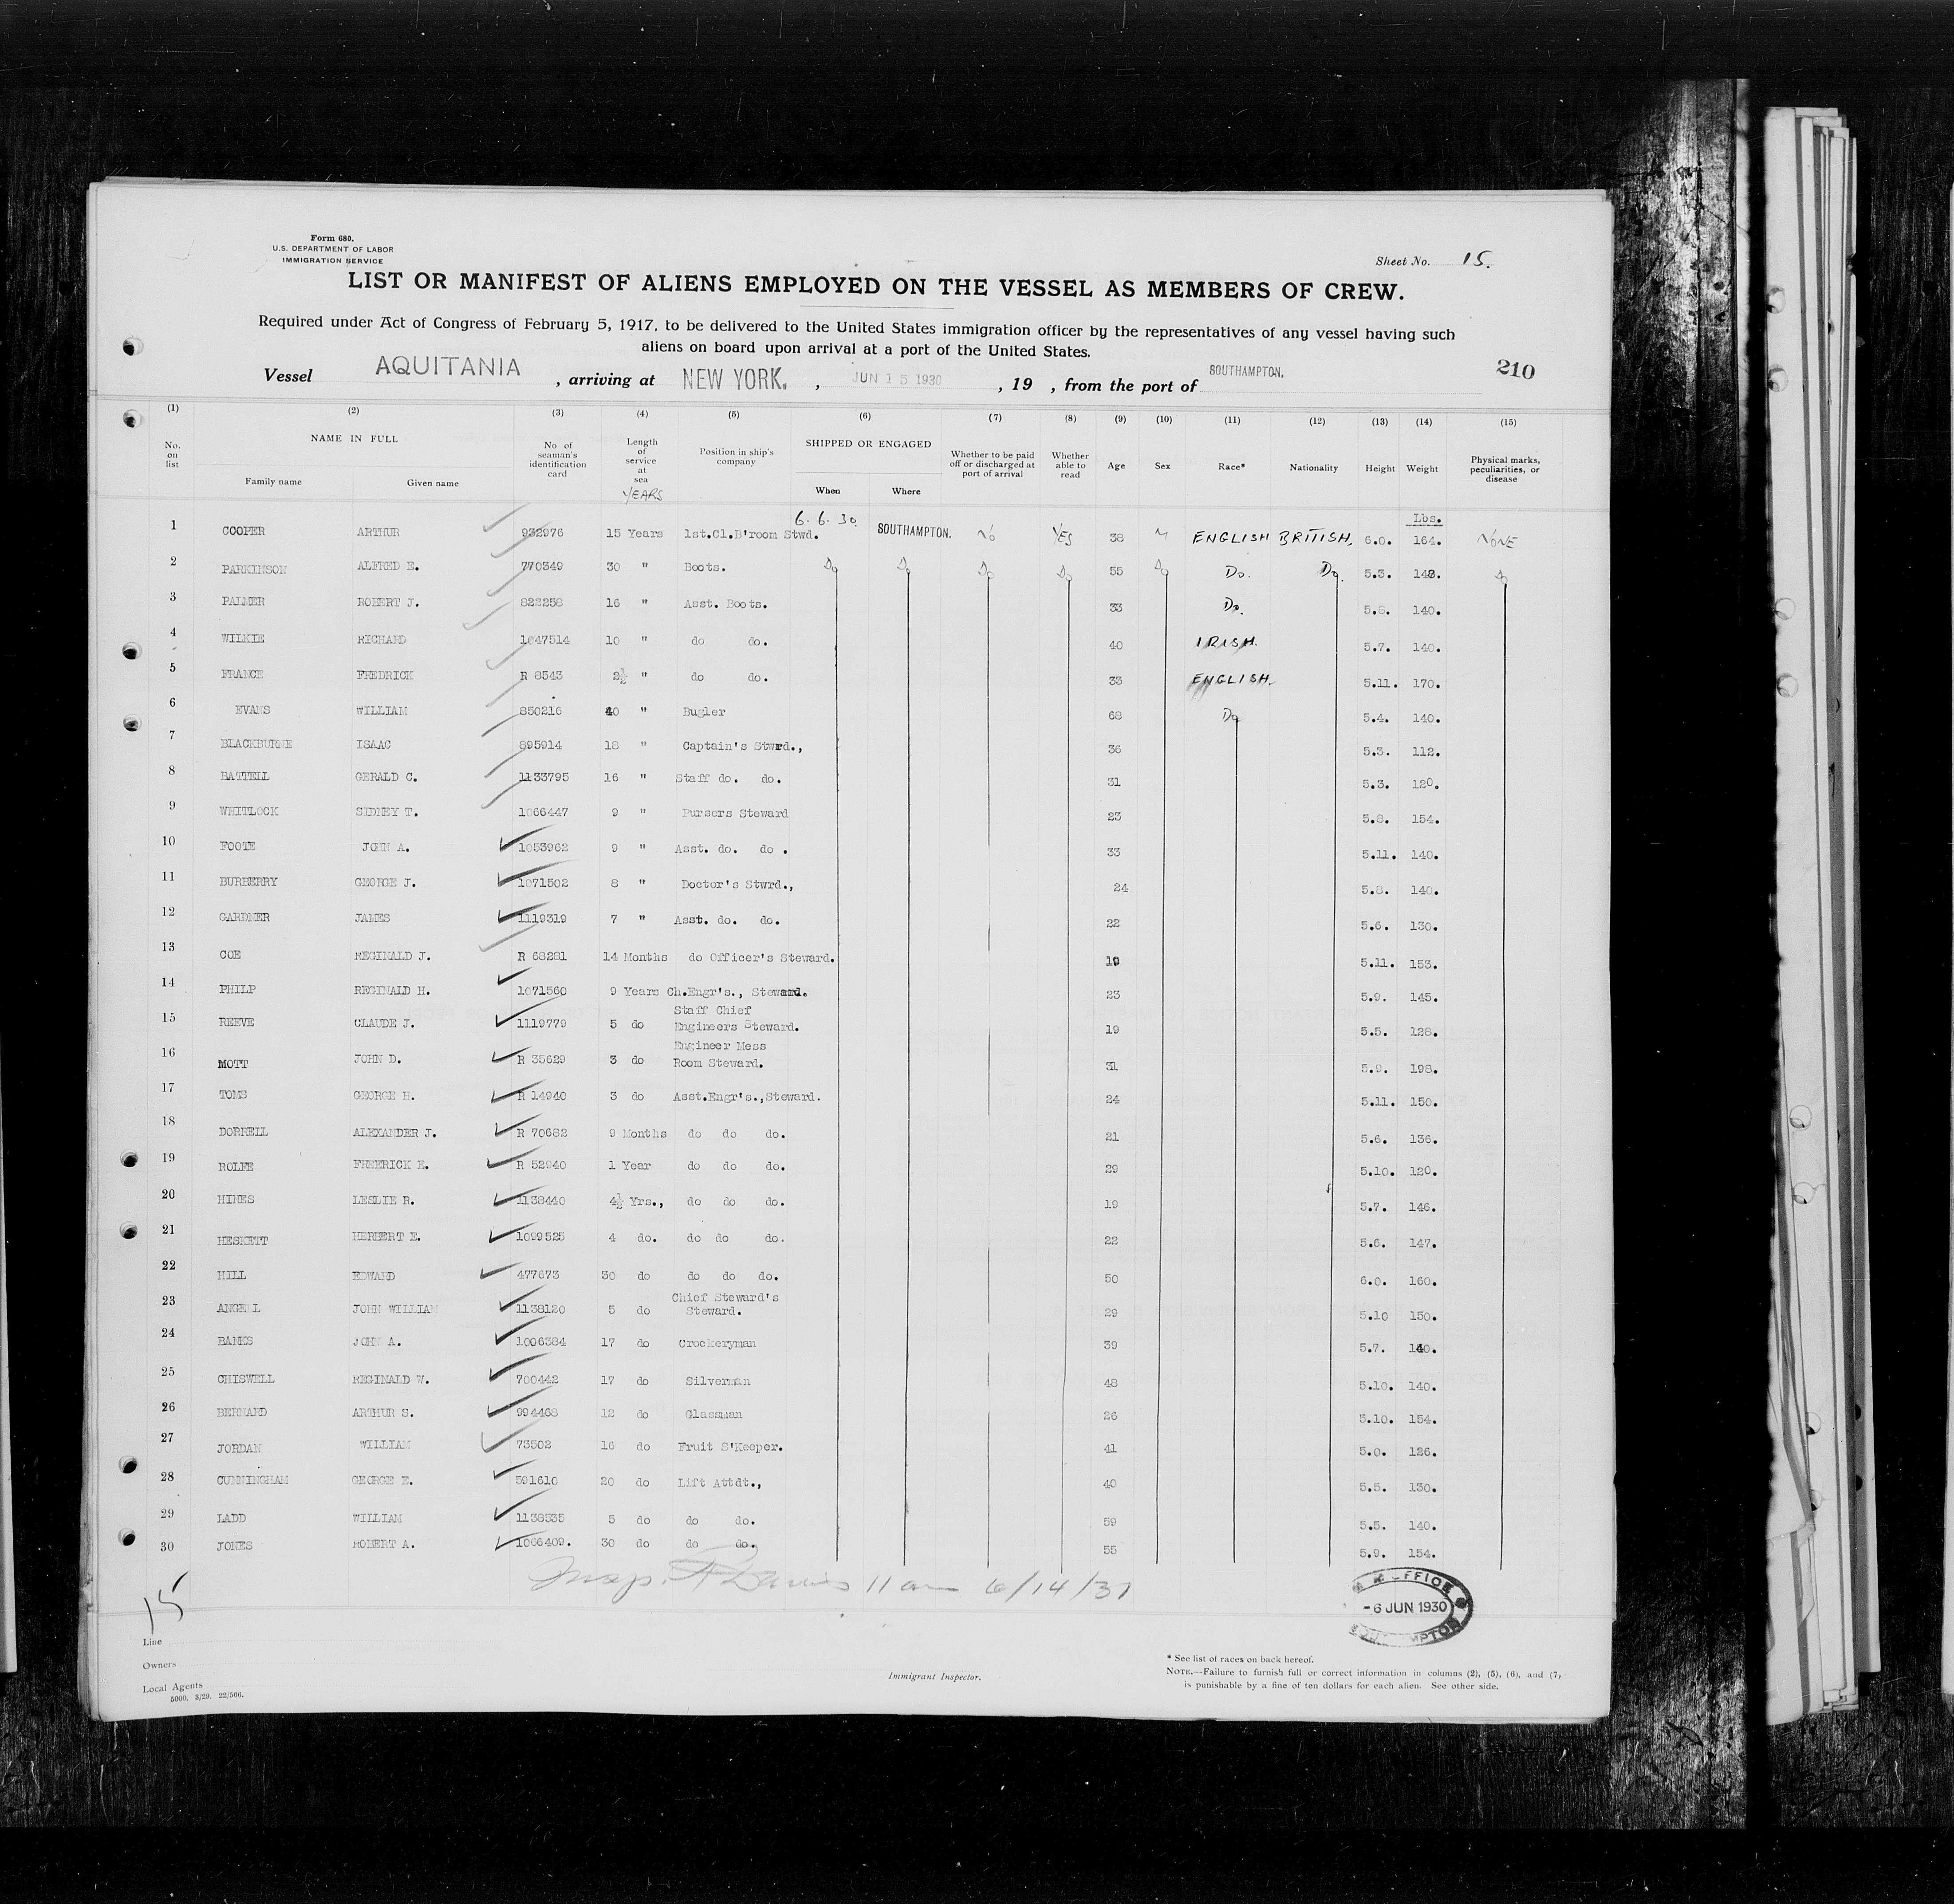 Form 680.
U.S. DEPARTMENT OF LABOR
IMMIGRATION SERVICE
Sheet No. 15.
LIST OR MANIFEST OF ALIENS EMPLOYED ON THE VESSEL AS MEMBERS OF CREW.
Required under Act of Congress of February 5, 1917, to be delivered to the United States immigration officer by the representatives of any vessel having such
aliens on board upon arrival at a port of the United States.
Vessel AQUITANIA , arriving at NEW YORK. , JUN 15 1930 , 19 , from the port of SOUTHAMPTON. 210
(1) (2) (3) (4) (5) (6) (7) (8) (9) (10) (11) (12) (13) (14) (15)
No. on list NAME IN FULL Family name Given name No of seaman's identification card Length of service at sea YEARS Position in ship's company SHIPPED OR ENGAGED When Where Whether to be paid off or discharged at port of arrival Whether able to read Age Sex Race* Nationality Height Weight Physical marks, peculiarities, or disease
Lbs.
1 COOPER ARTHUR 932976 15 Years 1st.Cl.B'room Stwd. 6.6.30. SOUTHAMPTON. No YES 38 M ENGLISH BRITISH. 6.0. 164. NONE
2 PARKINSON ALFRED E. 770349 30 " Boots. Do Do Do Do 55 Do Do. Do. 5.3. 148. Do
3 PALMER ROBERT J. 822258 16 " Asst. Boots. 33 Do. 5.8. 140.
4 WILKIE RICHARD 1047514 10 " do do. 40 IRISH. 5.7. 140.
5 FRANCE FREDRICK R 8543 2½ " do do. 33 ENGLISH. 5.11. 170.
6 EVANS WILLIAM 850216 40 " Bugler 68 Do 5.4. 140.
7 BLACKBURNE ISAAC 895914 18 " Captain's Stwrd., 36 5.3. 112.
8 BATTELL GERALD C. 1133795 16 " Staff do. do. 31 5.3. 120.
9 WHITLOCK SIDNEY T. 1066447 9 " Pursers Steward 23 5.8. 154.
10 FOOTE JOHN A. 1053962 9 " Asst. do. do . 33 5.11. 140.
11 BURBERRY GEORGE J. 1071502 8 " Doctor's Stwrd., 24 5.8. 140.
12 GARDNER JAMES 1119319 7 " Asst. do. do. 22 5.6. 130.
13 COE REGINALD J. R 68281 14 Months do Officer's Steward. 19 5.11. 153.
14 PHILP REGINALD H. 1071560 9 Years Ch.Engr's., Steward. 23 5.9. 145.
15 REEVE CLAUDE J. 1119779 5 do Staff Chief Engineers Steward. 19 5.5. 128.
16 MOTT JOHN D. R 35629 3 do Engineer Mess Room Steward. 31 5.9. 198.
17 TOMS GEORGE H. R 14940 3 do Asst.Engr's.,Steward. 24 5.11. 150.
18 DORRELL ALEXANDER J. R 70682 9 Months do do do. 21 5.6. 136.
19 ROLFE FREDERICK E. R 52940 1 Year do do do. 29 5.10. 120.
20 HINES LESLIE R. 1138440 4½ Yrs., do do do. 19 5.7. 146.
21 HESKETT HERBERT E. 1099525 4 do. do do do. 22 5.6. 147.
22 HILL EDWARD 477673 30 do do do do. 50 6.0. 160.
23 ANGELL JOHN WILLIAM 1138120 5 do Chief Steward's Steward. 29 5.10 150.
24 BANKS JOHN A. 1006384 17 do Crockeryman 39 5.7. 140.
25 CHISWELL REGINALD W. 700442 17 do Silverman 48 5.10. 140.
26 BERNARD ARTHUR S. 994468 12 do Glassman 26 5.10. 154.
27 JORDAN WILLIAM 73502 16 do Fruit S'Keeper. 41 5.0. 126.
28 CUNNINGHAM GEORGE E. 591610 20 do Lift Attdt., 40 5.5. 130.
29 LADD WILLIAM 1138535 5 do do do. 59 5.5. 140.
30 JONES ROBERT A. 1066409. 30 do do do. 55 5.9. 154.
Insp. 11 am 6/14/30
15
OFFICE
-6 JUN 1930
Line
Owners
Local Agents
5000. 3/29. 22/566.
Immigrant Inspector.
* See list of races on back hereof.
NOTE.—Failure to furnish full or correct information in columns (2), (5), (6), and (7)
is punishable by a fine of ten dollars for each alien. See other side.